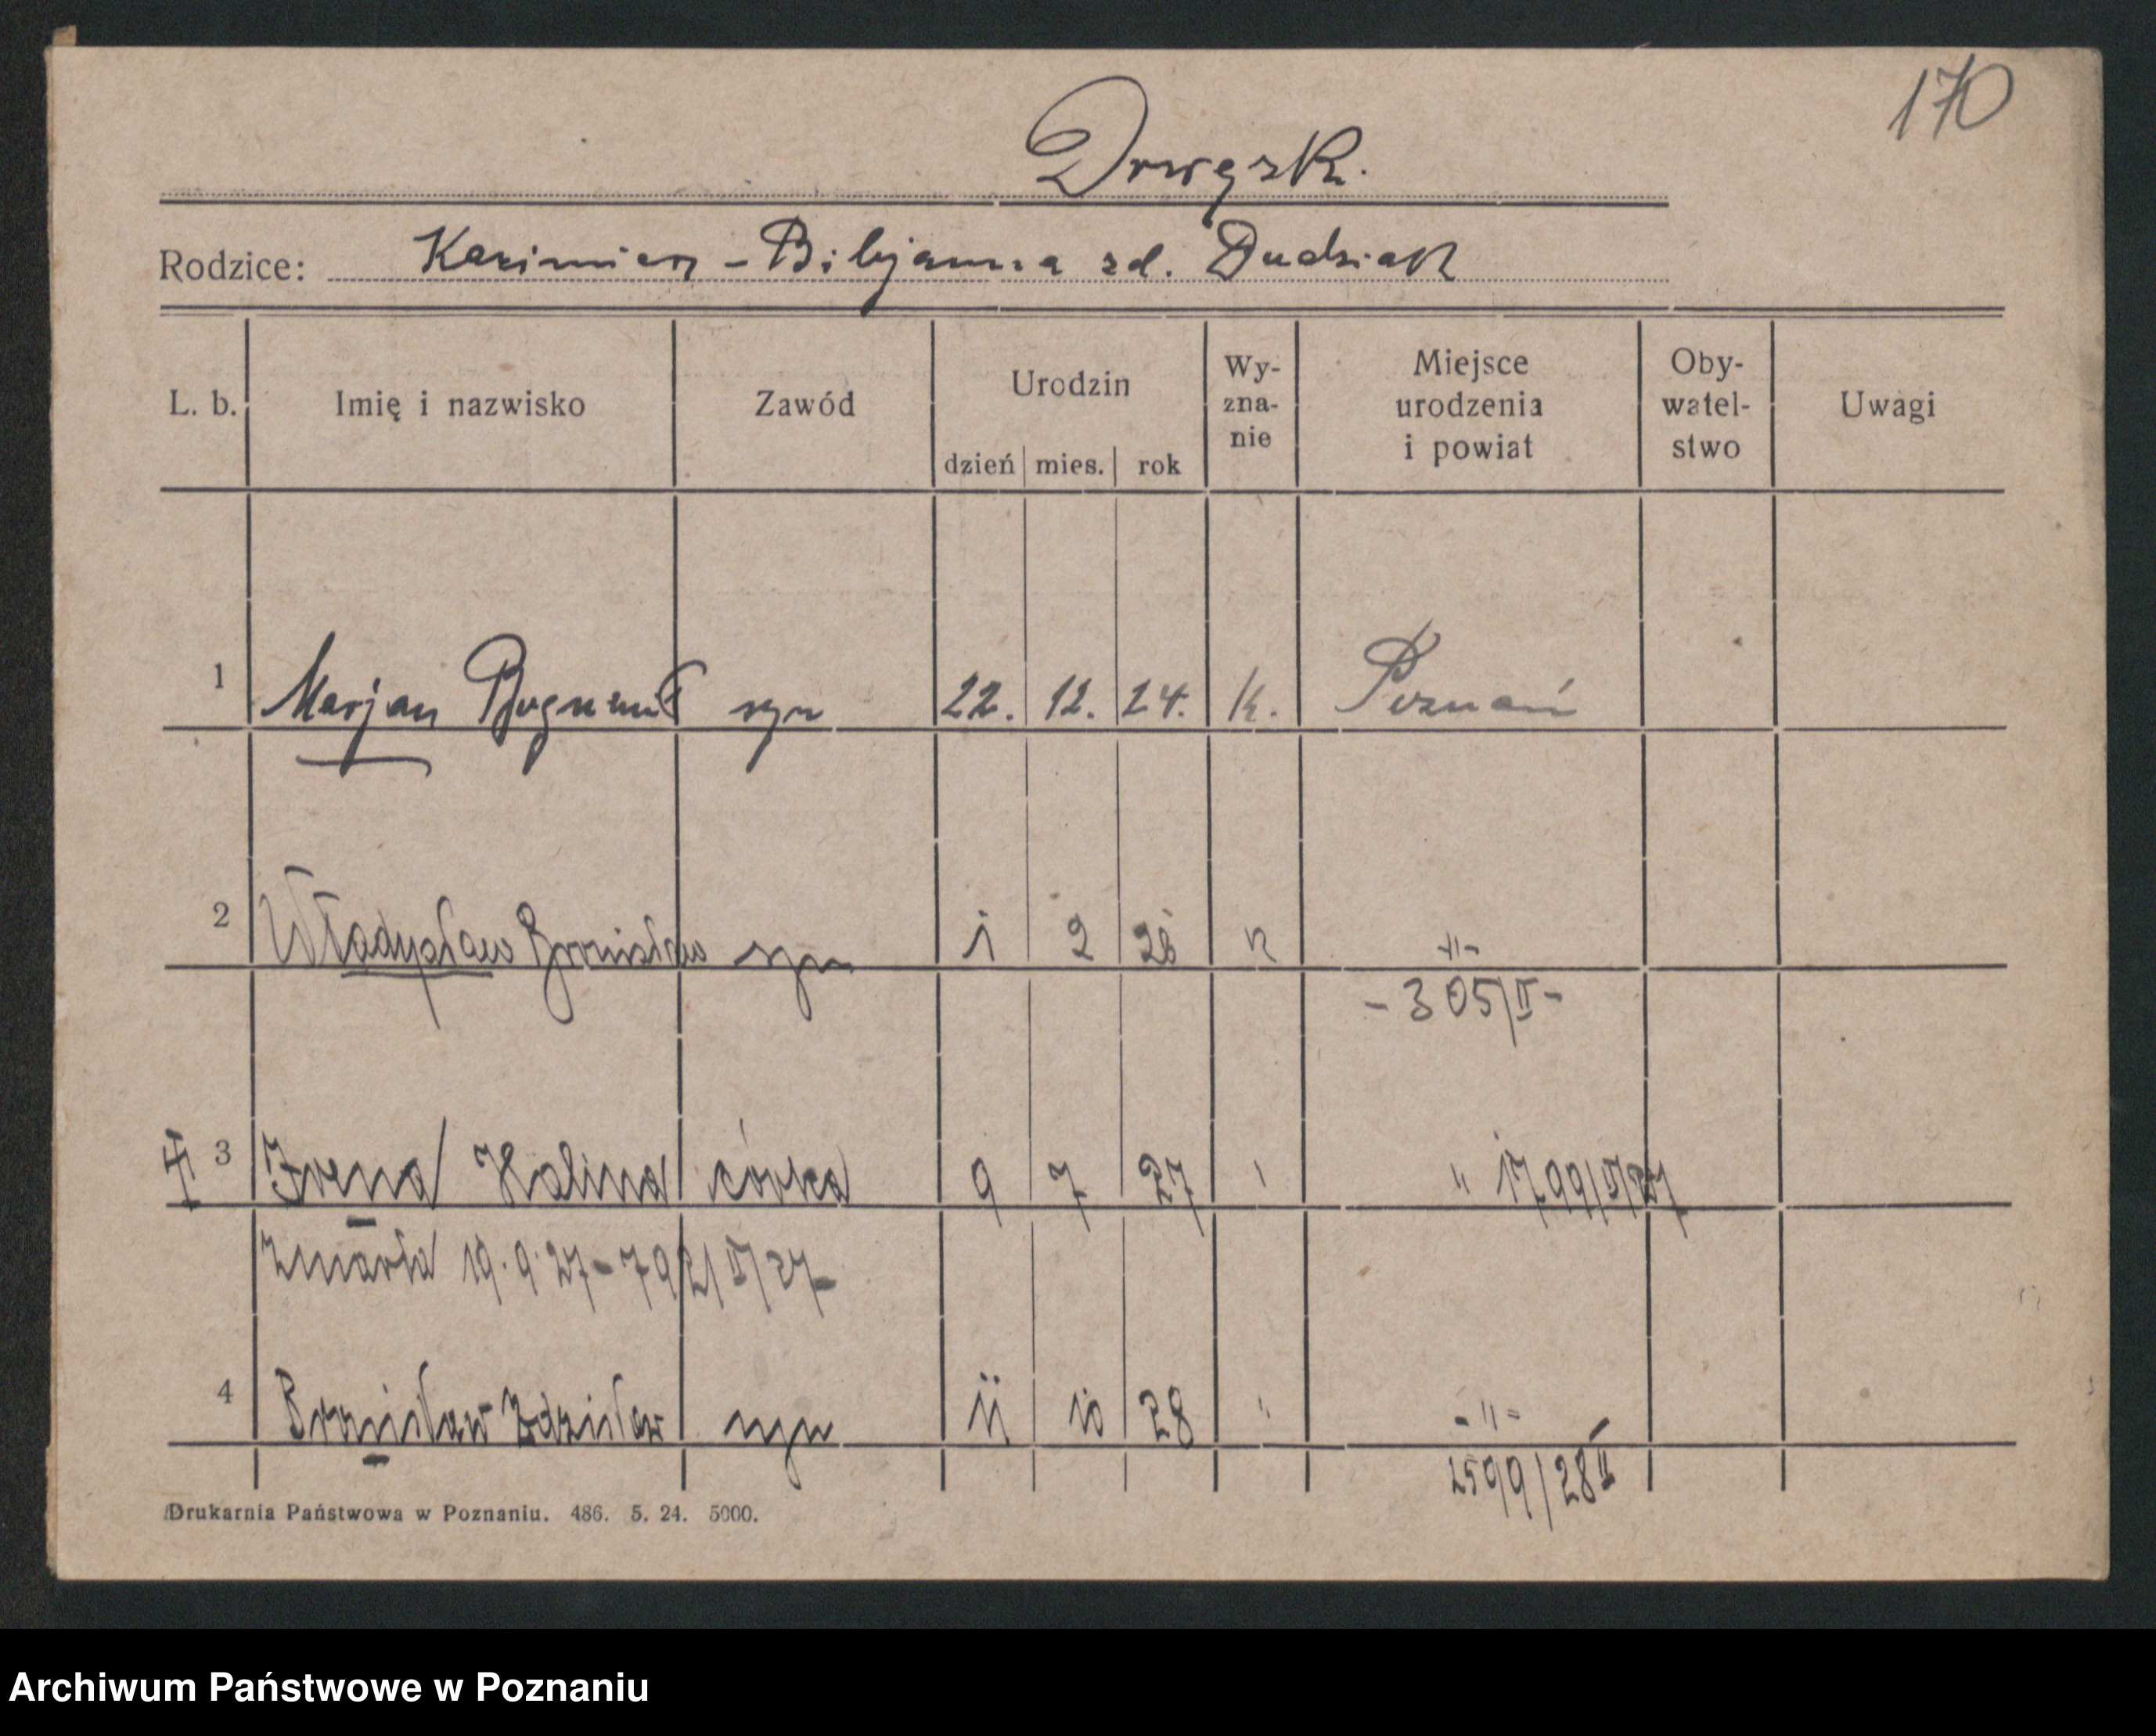 170
Drwęzk.
Rodzice: Kazimierz - Bibjanna zd. Dudziak
L. b. Imię i nazwisko Zawód Urodzin dzień mies. rok Wy-zna-nie Miejsce urodzenia i powiat Oby-watel-stwo Uwagi
1 Marjan Bogumił syn 22. 12. 24. k. Poznań
2 Władysław Bronisław syn 1 2 26 k -"-
- 305/II -
3 Irena Halina córka 9 7 27 " " 1799/II/27
zmarła 19.9.27 - 792/II/27 -
4 Bronisław Zdzisław syn 11 10 28 " -"-
2599/28 II
Drukarnia Państwowa w Poznaniu. 486. 5. 24. 5000.
Archiwum Państwowe w Poznaniu